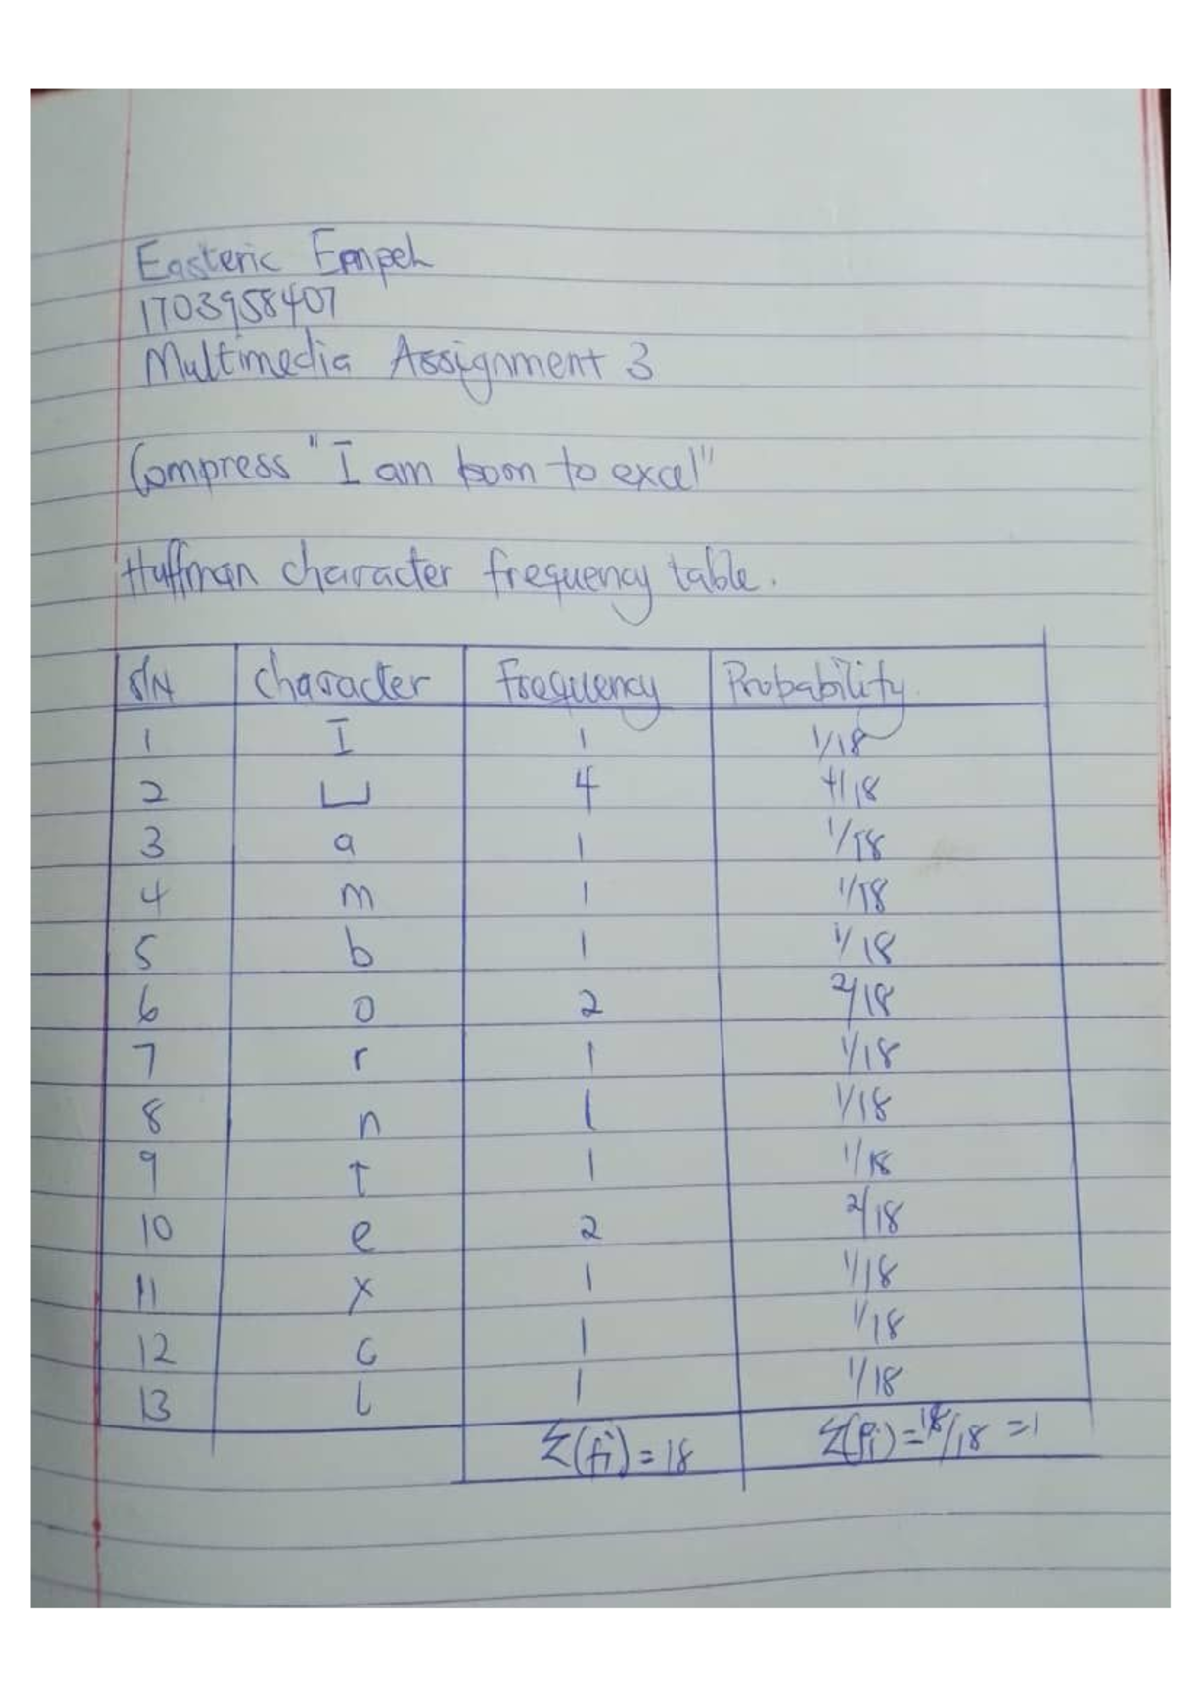 Easteric Empeh
1703958407
Multimedia Assignment 3
Compress "I am born to excel"
Huffman character frequency table.
S/N Character Frequency Probability
1 I 1 1/18
2 ⊔ 4 4/18
3 a 1 1/18
4 m 1 1/18
5 b 1 1/18
6 o 2 2/18
7 r 1 1/18
8 n 1 1/18
9 t 1 1/18
10 e 2 2/18
11 x 1 1/18
12 c 1 1/18
13 l 1 1/18
Σ(fi) = 18 Σ(Pi) = 18/18 = 1